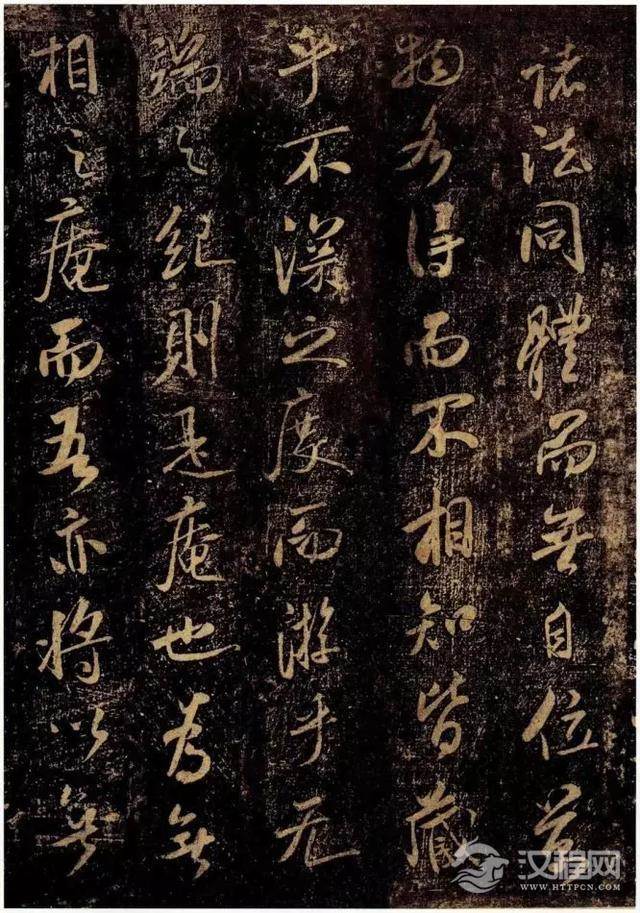 諸法同體而無自位萬
物各得而不相知皆藏
乎不深之度而游乎无
端之紀則是庵也為無
相之庵而吾亦將以無
汉程网
WWW.HTTPCN.COM